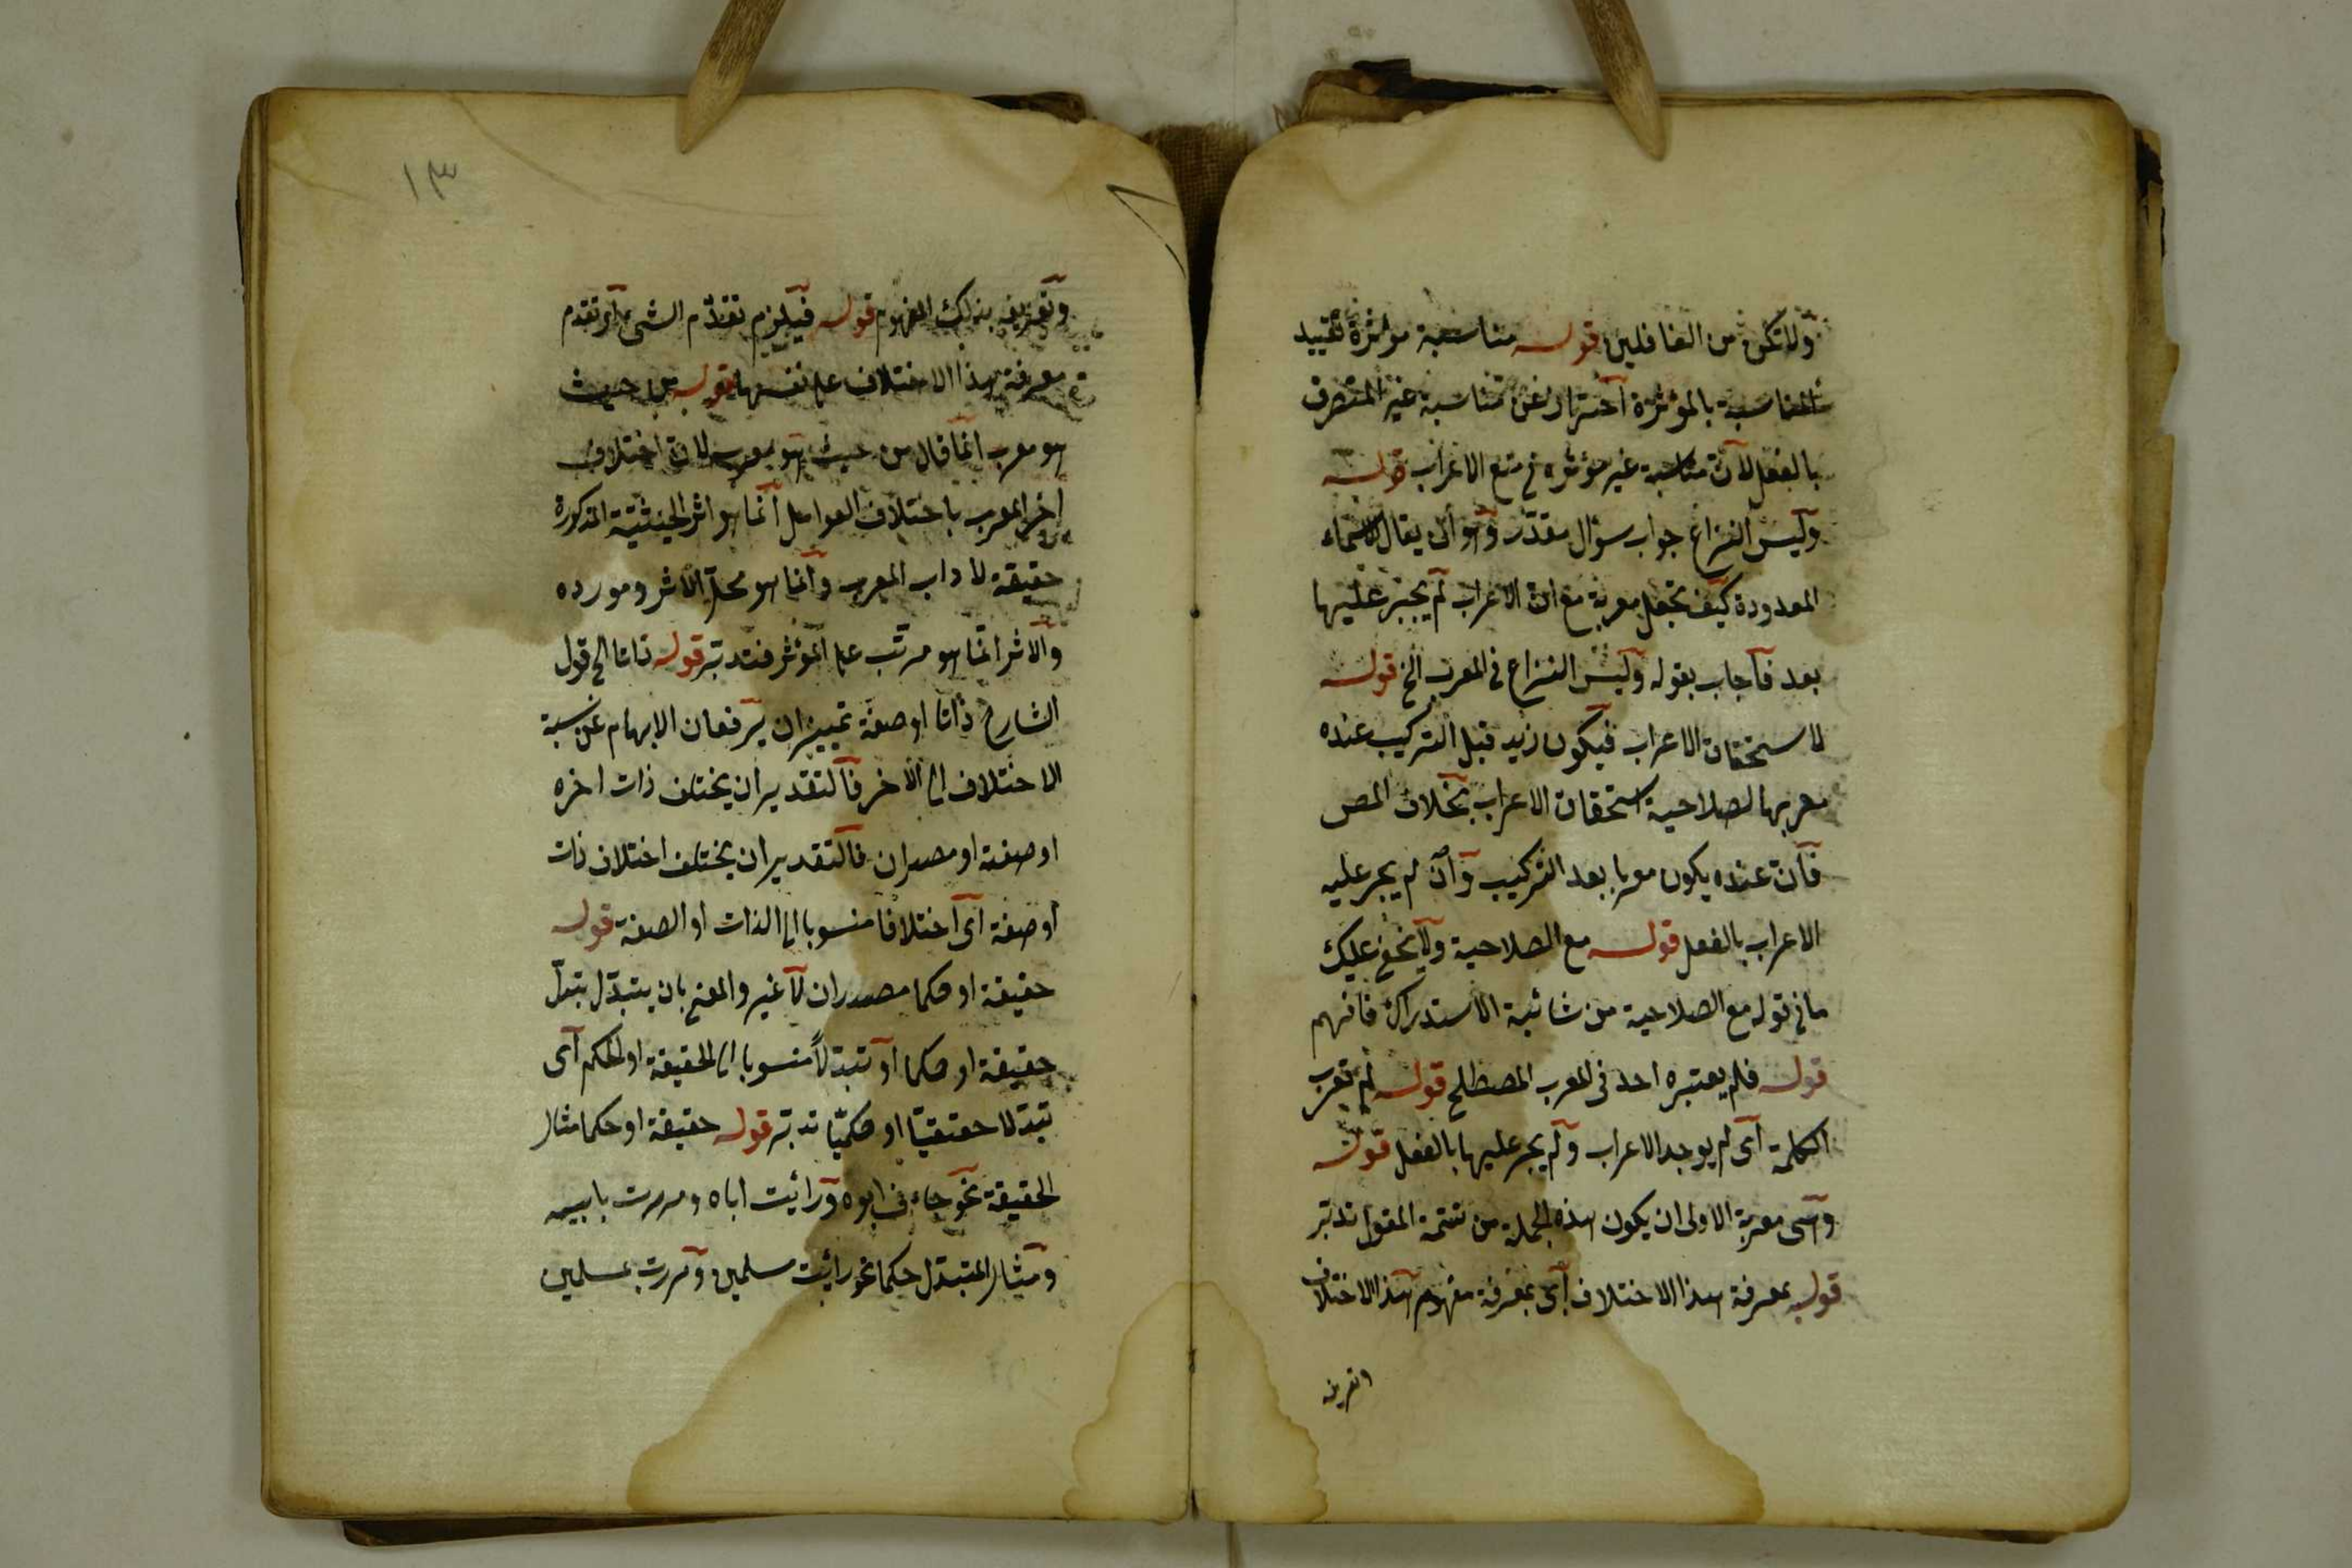 ولا تكن من الغافلين قوله مناسبة مؤثرة تقييد
المناسبة بالمؤثرة احتراز عن مناسبة غير المنصرف
بالفعل لان مناسبة غير مؤثرة في منع الاعراب قوله
وليس النزاع جواب سؤال مقدر وهو ان يقال الاسماء
المعدودة كيف تجعل معربة مع ان الاعراب لم يجر عليها
بعد فاجاب بقوله وليس النزاع في المعرب الخ قوله
لاستحقاق الاعراب فيكون زيد قبل التركيب عنده
معربا لصلاحية استحقاق الاعراب بخلاف المص
فان عنده يكون معربا بعد التركيب وان لم يجر عليه
الاعراب بالفعل قوله مع الصلاحية ولا يخفى عليك
ما في قوله مع الصلاحية من شائبة الاستدراك فافهم
قوله فلم يعتبره احد في المعرب المصطلح قوله لم تعرب
الكلمة اى لم يوجد الاعراب ولم يجر عليها بالفعل قوله
وهى معربة الاولى ان يكون هذه الجملة من تتمة المقول تدبر
قوله بمعرفة هذا الاختلاف اى بمعرفة مفهوم هذا الاختلاف
وتعريفه
١٣
وتعريفه بذلك المفهوم قوله فيلزم تقدم الشئ اى تقدم
معرفة هذا الاختلاف على نفسها قوله من حيث
هو معرب انما قال من حيث هو معرب لان اختلاف
اخر المعرب باختلاف العوامل انما هو اثر الحيثية المذكورة
حقيقة لا ذات المعرب وانما هو محل الاثر ومورده
والاثر انما هو مرتب على المؤثر فتدبر قوله ذاتا الخ قول
الشارح ذاتا او صفة تمييزان يرفعان الابهام عن نسبة
الاختلاف الى الاخر فالتقدير ان يختلف ذات اخره
او صفة او مصدران فالتقدير ان يختلف اختلاف ذات
او صفة اى اختلافا منسوبا الى الذات او الصفة قوله
حقيقة او حكما مصدران لا غير والمعنى بان يتبدل تبدل
حقيقة او حكما او تبدلاً منسوبا الى الحقيقة او الحكم اى
تبدلا حقيقيا او حكميا تدبر قوله حقيقة او حكما مثال
الحقيقة نحو جاءنى ابوه ورائيت اباه ومررت بابيه
ومثال المتبدل حكما نحو رائيت مسلمين ومررت بمسلمين